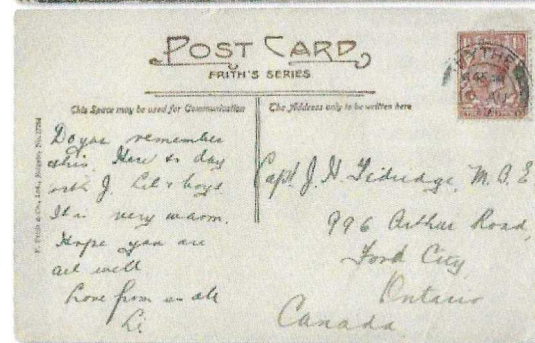 POST CARD
FRITH'S SERIES
This Space may be used for Communication
The Address only to be written here
HYTHE
F. Frith & Co., Ltd., Reigate.
Do you remember
this. Here to day
with J. Lil & boys
It is very warm.
Hope you are
all well
Love from us all
Li
Capt. J. H. Tidridge, M.B.E
996 Arthur Road,
Ford City
Ontario
Canada